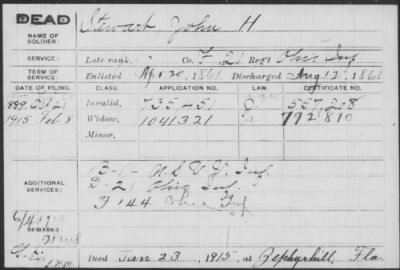 DEAD
NAME OF SOLDIER: Stewart, John H
SERVICE: Late rank, Co. F 21 Regt Ohio Inf
TERM OF SERVICE: Enlisted Apr 20, 1861 Discharged Aug 12, 1861
DATE OF FILING. CLASS. APPLICATION NO. LAW. CERTIFICATE NO.
Invalid, 735-451 557,208
1915 Feb 8 Widow, 1041321 792810
Minor,
ADDITIONAL SERVICES:
B-1- U.S.V.V. Inf.
D-21 Ohio Inf.
F 144 Inf
Died Jan 23, 1915, at Zephyrhill, Fla.